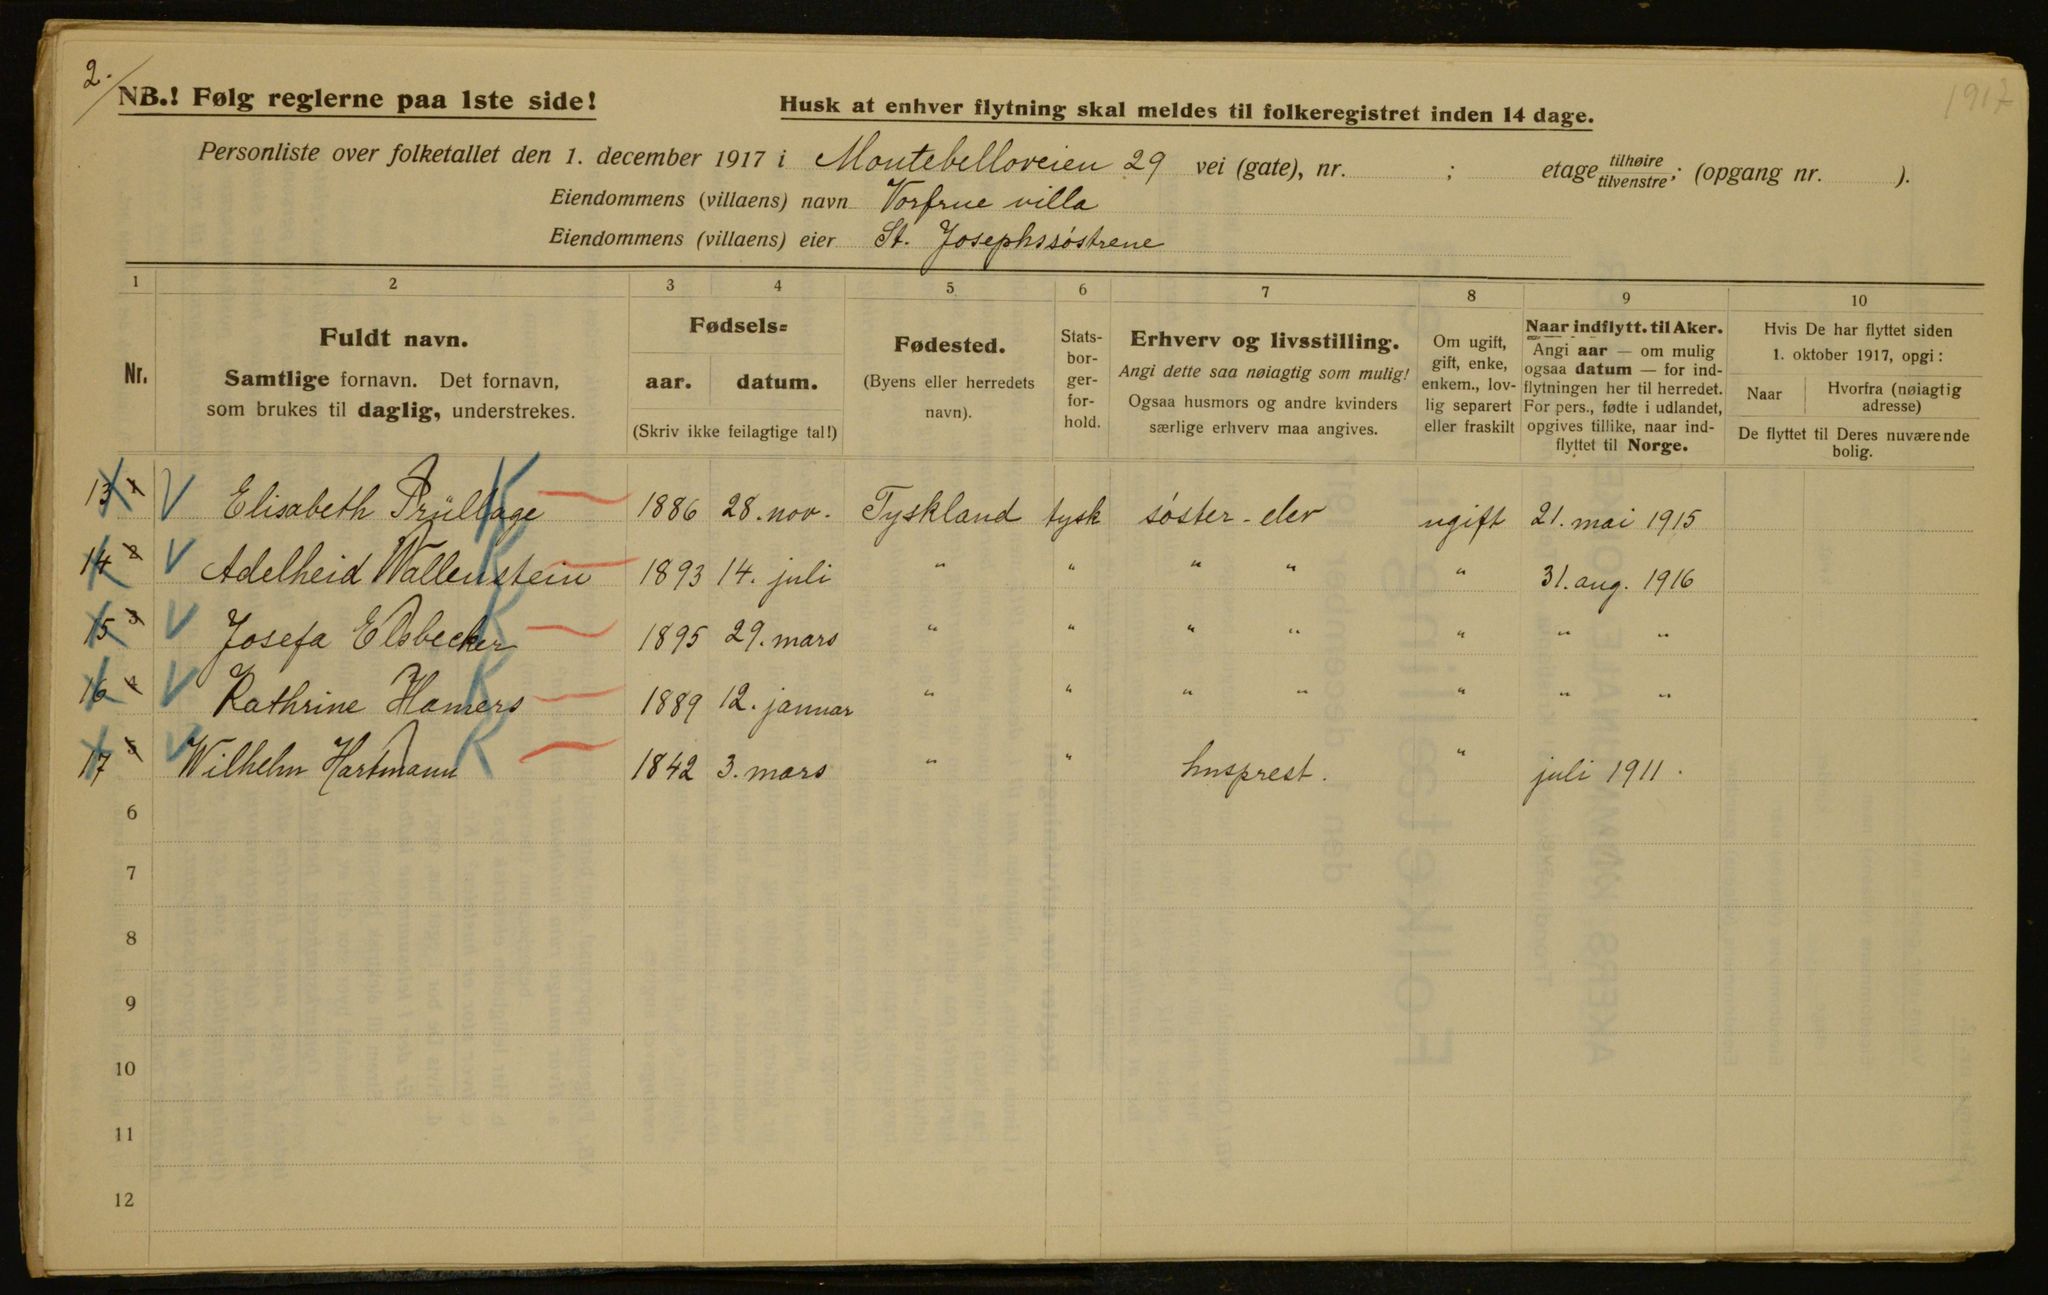 2.
1917
NB.! Følg reglerne paa 1ste side!
Husk at enhver flytning skal meldes til folkeregistret inden 14 dage.
Personliste over folketallet den 1. december 1917 i Montebelloveien 29 vei (gate), nr. ; etage tilhøire tilvenstre; (opgang nr. ).
Eiendommens (villaens) navn Vorfrue villa
Eiendommens (villaens) eier St. Josephssøstrene
1 2 3 4 5 6 7 8 9 10
Nr.
Fuldt navn.
Samtlige fornavn. Det fornavn,
som brukes til daglig, understrekes.
Fødsels=
aar. datum.
(Skriv ikke feilagtige tal!)
Fødested.
(Byens eller herredets
navn).
Stats-
bor-
ger-
for-
hold.
Erhverv og livsstilling.
Angi dette saa nøiagtig som mulig!
Ogsaa husmors og andre kvinders
særlige erhverv maa angives.
Om ugift,
gift, enke,
enkem., lov-
lig separert
eller fraskilt
Naar indflytt. til Aker.
Angi aar — om mulig
ogsaa datum — for ind-
flytningen her til herredet.
For pers., fødte i udlandet,
opgives tillike, naar ind-
flyttet til Norge.
Hvis De har flyttet siden
1. oktober 1917, opgi:
Naar
Hvorfra (nøiagtig
adresse)
De flyttet til Deres nuværende
bolig.
13 1 V Elisabeth Prüllage K 1886 28. nov. Tyskland tysk søster-elev ugift 21. mai 1915
14 2 V Adelheid Wallenstein K 1893 14. juli " " " " " 31. aug. 1916
15 3 V Josefa Elsbecker K 1895 29. mars " " " " " " "
16 4 V Kathrine Hamers K 1889 12. januar " " " " " " "
17 5 V Wilhelm Hartmann K 1842 3. mars " " husprest. " juli 1911.
6
7
8
9
10
11
12